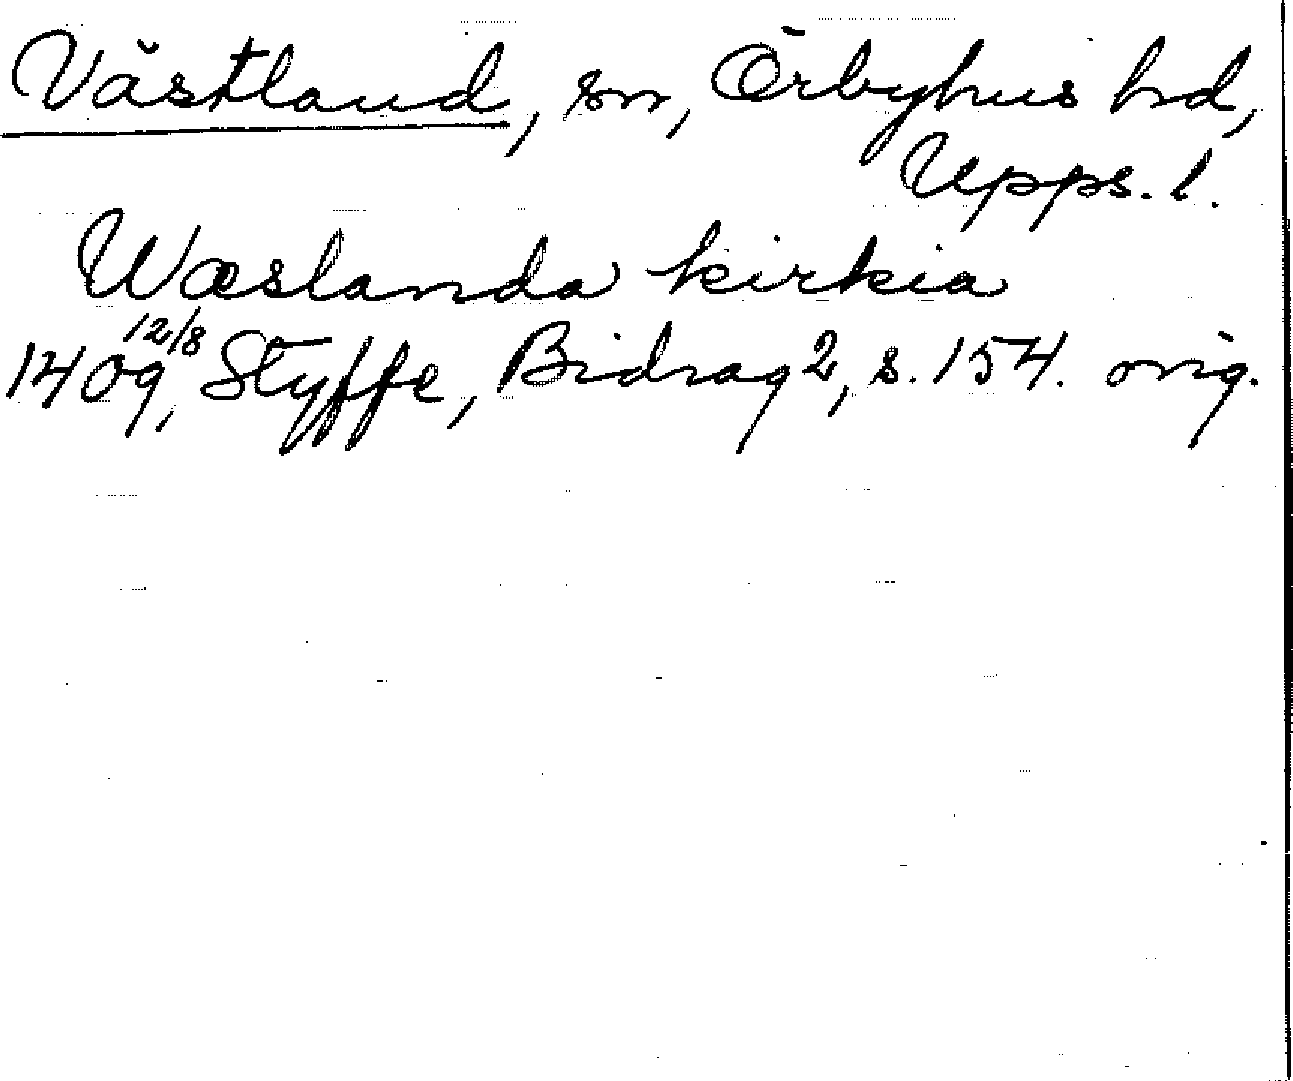 Västland, sn, Örbyhus hd,
Upps. l.
Wæslanda kirkia
1409 12/8, Styffe, Bidrag 2, s. 154. orig.